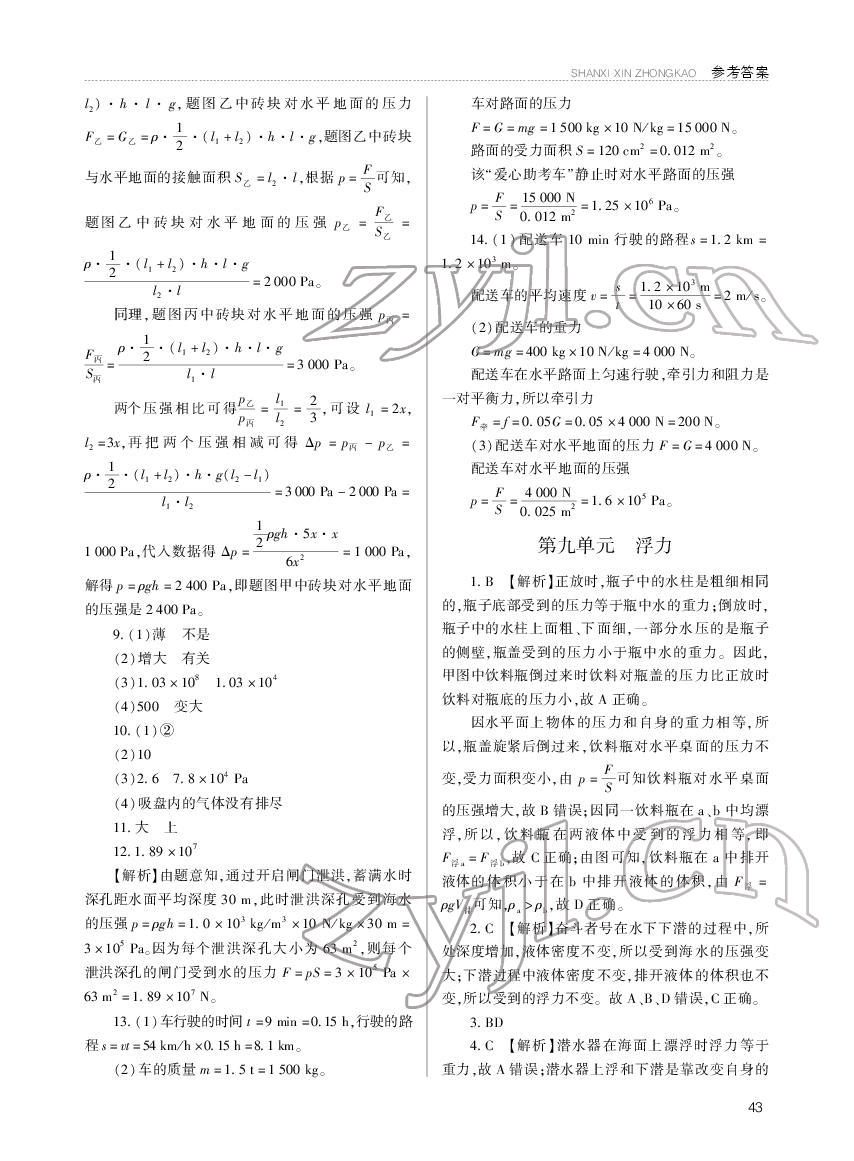 SHANXI XIN ZHONGKAO 参考答案
l₂)·h·l·g,题图乙中砖块对水平地面的压力
F乙=G乙=ρ·1/2·(l₁+l₂)·h·l·g,题图乙中砖块
与水平地面的接触面积 S乙=l₂·l,根据 p=F/S可知,
题图乙中砖块对水平地面的压强 p乙=F乙/S乙=
ρ·1/2·(l₁+l₂)·h·l·g/l₂·l=2 000 Pa。
同理,题图丙中砖块对水平地面的压强 p丙=
F丙/S丙=ρ·1/2·(l₁+l₂)·h·l·g/l₁·l=3 000 Pa。
两个压强相比可得p乙/p丙=l₁/l₂=2/3,可设 l₁=2x,
l₂=3x,再把两个压强相减可得 Δp=p丙-p乙=
ρ·1/2·(l₁+l₂)·h·g(l₂-l₁)/l₁·l₂=3 000 Pa-2 000 Pa=
1 000 Pa,代入数据得 Δp=1/2ρgh·5x·x/6x²=1 000 Pa,
解得 p=ρgh=2 400 Pa,即题图甲中砖块对水平地面
的压强是 2 400 Pa。
9. (1)薄 不是
(2)增大 有关
(3)1.03×10⁸ 1.03×10⁴
(4)500 变大
10. (1)②
(2)10
(3)2.6 7.8×10⁴ Pa
(4)吸盘内的气体没有排尽
11. 大 上
12. 1.89×10⁷
【解析】由题意知,通过开启闸门泄洪,蓄满水时
深孔距水面平均深度 30 m,此时泄洪深孔受到海水
的压强 p=ρgh=1.0×10³ kg/m³×10 N/kg×30 m=
3×10⁵ Pa。因为每个泄洪深孔大小为 63 m²,则每个
泄洪深孔的闸门受到水的压力 F=pS=3×10⁵ Pa×
63 m²=1.89×10⁷ N。
13. (1)车行驶的时间 t=9 min=0.15 h,行驶的路
程 s=vt=54 km/h×0.15 h=8.1 km。
(2)车的质量 m=1.5 t=1 500 kg。
车对路面的压力
F=G=mg=1 500 kg×10 N/kg=15 000 N。
路面的受力面积 S=120 cm²=0.012 m²。
该“爱心助考车”静止时对水平路面的压强
p=F/S=15 000 N/0.012 m²=1.25×10⁶ Pa。
14. (1)配送车 10 min 行驶的路程s=1.2 km=
1.2×10³ m。
配送车的平均速度 v=s/t=1.2×10³ m/10×60 s=2 m/s。
(2)配送车的重力
G=mg=400 kg×10 N/kg=4 000 N。
配送车在水平路面上匀速行驶,牵引力和阻力是
一对平衡力,所以牵引力
F牵=f=0.05G=0.05×4 000 N=200 N。
(3)配送车对水平地面的压力 F=G=4 000 N。
配送车对水平地面的压强
p=F/S=4 000 N/0.025 m²=1.6×10⁵ Pa。
第九单元 浮力
1. B 【解析】正放时,瓶子中的水柱是粗细相同
的,瓶子底部受到的压力等于瓶中水的重力;倒放时,
瓶子中的水柱上面粗、下面细,一部分水压的是瓶子
的侧壁,瓶盖受到的压力小于瓶中水的重力。因此,
甲图中饮料瓶倒过来时饮料对瓶盖的压力比正放时
饮料对瓶底的压力小,故 A 正确。
因水平面上物体的压力和自身的重力相等,所
以,瓶盖旋紧后倒过来,饮料瓶对水平桌面的压力不
变,受力面积变小,由 p=F/S可知饮料瓶对水平桌面
的压强增大,故 B 错误;因同一饮料瓶在 a、b 中均漂
浮,所以,饮料瓶在两液体中受到的浮力相等,即
F浮a=F浮b,故 C 正确;由图可知,饮料瓶在 a 中排开
液体的体积小于在 b 中排开液体的体积,由 F浮=
ρgV排可知,ρa>ρb,故 D 正确。
2. C 【解析】奋斗者号在水下下潜的过程中,所
处深度增加,液体密度不变,所以受到海水的压强变
大;下潜过程中液体密度不变,排开液体的体积也不
变,所以受到的浮力不变。故 A、B、D 错误,C 正确。
3. BD
4. C 【解析】潜水器在海面上漂浮时浮力等于
重力,故 A 错误;潜水器上浮和下潜是靠改变自身的
43
zyjl.cn
zyjl.cn